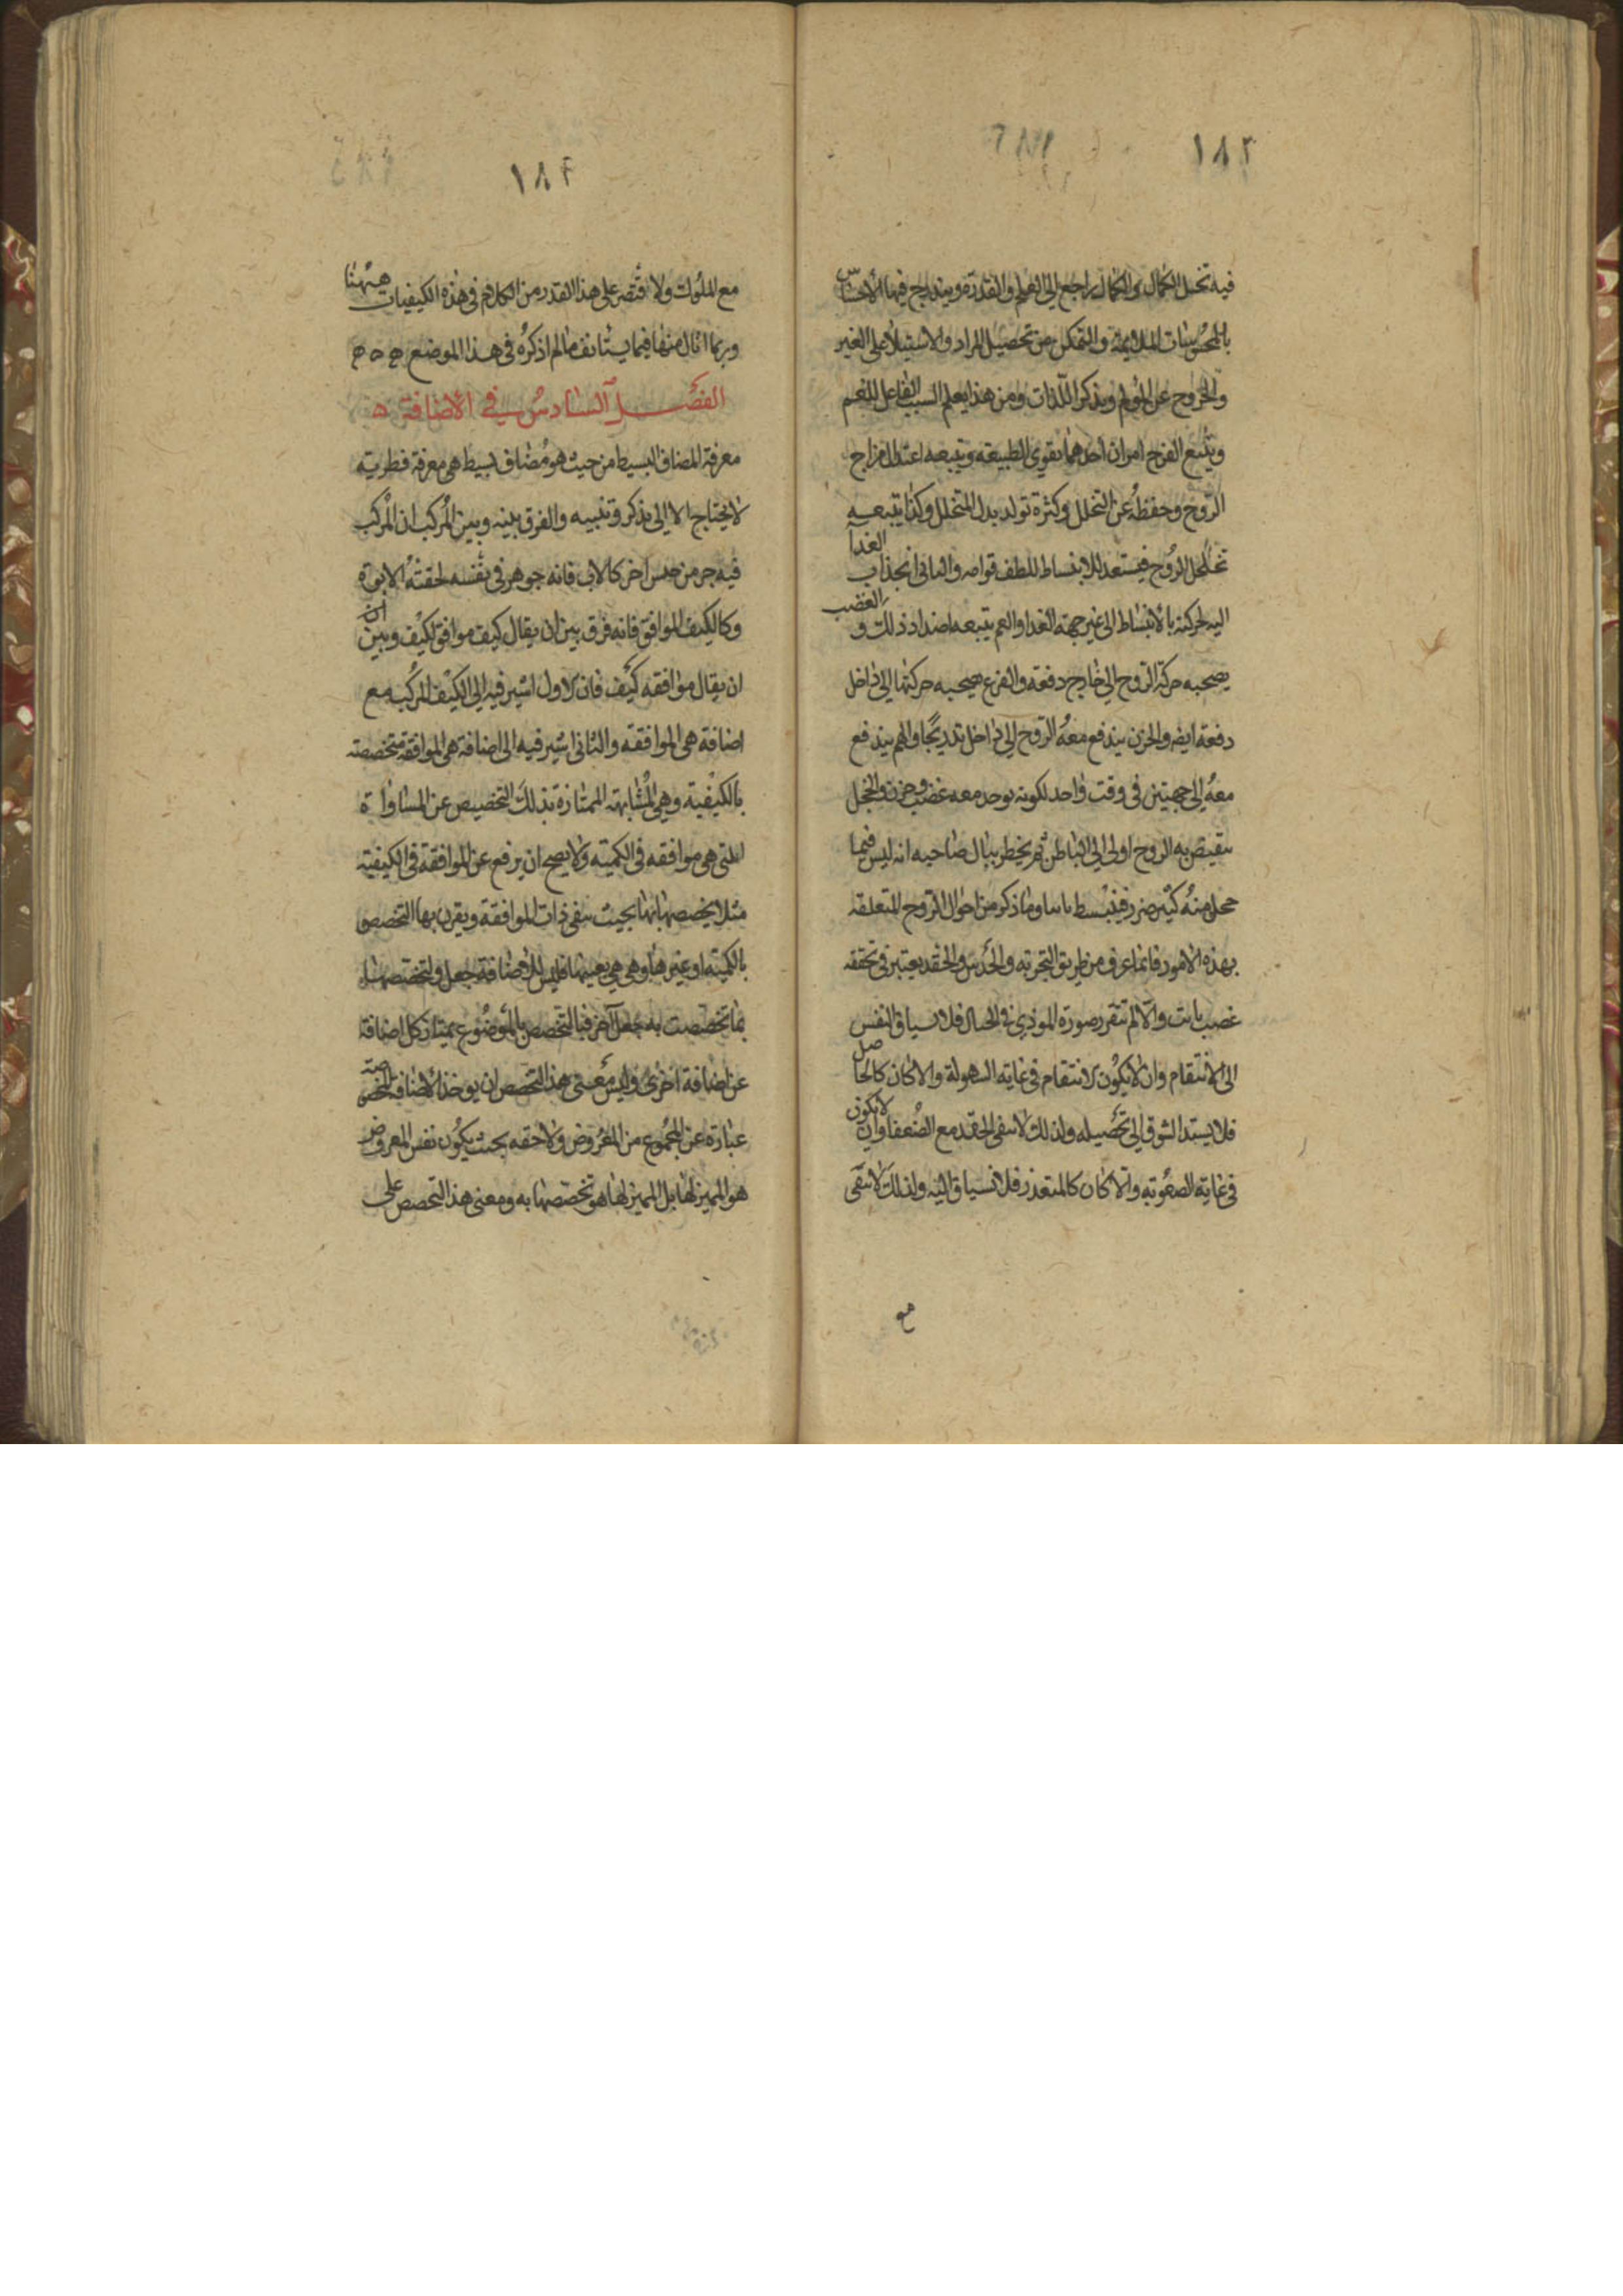 ١٨٣
فيه تخيل الكمال والكمال راجع الى العلم والقدرة ويندرج فيها الاحساس
بالمحسوسات الملايمة والتمكن من تحصيل المراد والاستيلا على الغير
والخروج عن المولم وتذكر اللذات ومن هذا يعلم السبب الفاعل للغم
ويتبع الفرح امران احدهما تقوي الطبيعة ويتبعه اعتدال مزاج
الروح وحفظه عن التحلل وكثرة تولد بدل المتحلل وكذا يتبعه
تخلخل الروح فيستعد للانبساط للطف قوامه والثاني انجذاب الغذا
اليه لحركته بالانبساط الى غير جهة الغذا والغم يتبعه اضداد ذلك والغضب
يصحبه حركة الروح الى خارج دفعة والفزع يصحبه حركتها الى داخل
دفعة ايضا والحزن يندفع معه الروح الى داخل تدريجا والهم يندفع
معه الى جهتين في وقت واحد لكونه يوجد معه غضب وحزن والخجل
ينقبض به الروح اولى الى الباطن ثم يخطر ببال صاحبه انه ليس فيما
خجل منه كثير ضرر فينبسط ثانيا وما ذكر من احوال الروح المتعلقة
بهذه الامور فانما عرف من طريق التجربة والحدس والحقد يعتبر في تحققه
غضب ثابت والا لم تتقرر صورة الموذي في الخيال فلا تنساق النفس
الى الانتقام وان لا يكون الانتقام في غاية السهولة والا كان كالحاصل
فلا يشتد الشوق الى تحصيله ولذلك لا يبقى الحقد مع الضعفا وان لا يكون
في غاية الصعوبة والا كان كالمتعذر فلا تنساق اليه ولذلك لا يبقى
مع
١٨٤
مع الملوك ولا قتصر على هذا القدر من الكلام في هذه الكيفيات ههنا
وربما انال منها فيما يستانف ما لم اذكره في هذا الموضع ه ه ه
الفصل السادس في الاضافة ه
معرفة المضاف البسيط من حيث هو مضاف بسيط هي معرفة فطرية
لا يحتاج الا الى تذكر وتنبيه والفرق بينه وبين المركب ان المركب
فيه جز من جنس اخر كالاب فانه جوهر في نفسه لحقته الابوة
وكالكيف الموافق فانه فرق بين ان يقال كيف موافق لكيف وبين ان
ان يقال موافقه كيف فان الاول اشير فيه الى الكيف المركب مع
اضافة هي الموافقة والثاني اشير فيه الى اضافة هي الموافقة متخصصة
بالكيفية وهي المشابهة الممتازة بذلك التخصيص عن المساواة
التي هي موافقة في الكمية ولا يصح ان يرفع عن الموافقة في الكيفية
مثلا تخصصها بها بحيث تبقى ذات الموافقة ويقرن بها التخصص
بالكمية او غيرها وهي هي بعينها فليس للاضافة جعل ولتخصصها
بما تخصصت به جعل آخر فبالتخصص بالموضوع يمتاز كل اضافة
عن اضافة اخرى وليس معنى هذا التخصص ان يوخذ الاضافة المتخصصة
عبارة عن المجموع من المعروض ولاحقه بحيث يكون نفس المعروض
هو المميز لها بل المميز لها هو تخصصها به ومعنى هذا التخصص على